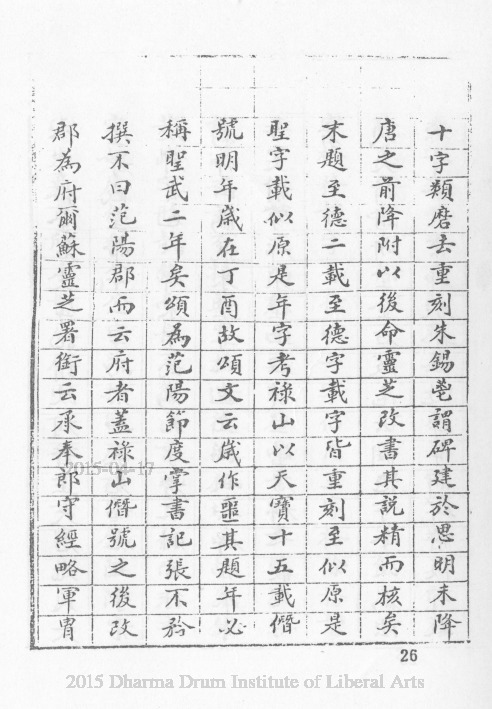 十字類磨去重刻朱錫鬯謂碑建於思明未降
唐之前降附以後命靈芝改書其説精而核矣
末題至德二載至德字載字皆重刻至似原是
聖字載似原是年字考祿山以天寶十五載僭
號明年歲在丁酉故頌文云歲作噩其題年必
稱聖武二年矣頌為范陽節度掌書記張不矜
撰不曰范陽郡而云府者蓋祿山僭號之後改
郡為府爾蘇靈芝署銜云承奉郎守經略軍胄
26
2015-04-17
2015 Dharma Drum Institute of Liberal Arts